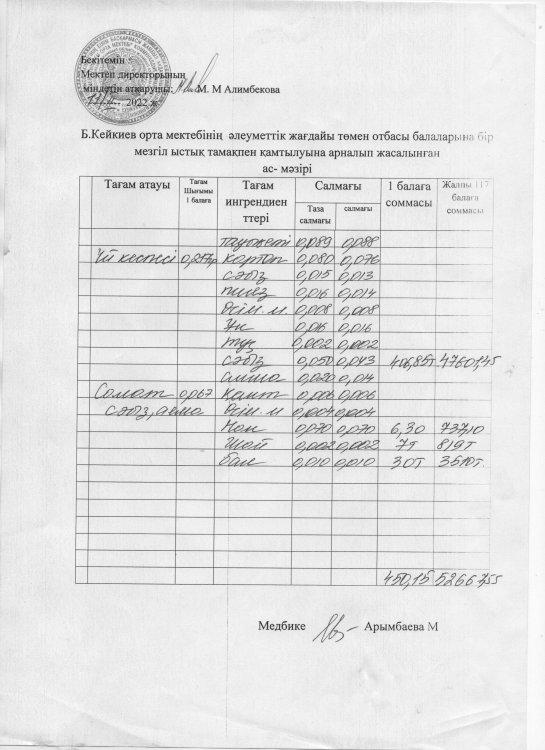 Бекітемін
Мектеп директорының
міндетін атқарушы: М. М Алимбекова
2022 ж
Б.Кейкиев орта мектебінің әлеуметтік жағдайы төмен отбасы балаларына бір
мезгіл ыстық тамақпен қамтылуына арналып жасалынған
ас- мәзірі
Тағам атауы Тағам Шығымы 1 балаға Тағам ингрендиенттері Салмағы 1 балаға соммасы Жалпы 117 балаға соммасы
Таза салмағы салмағы
0,089 0,088
Үй кеспесі картоп 0,080 0,076
сәбіз 0,015 0,013
пияз 0,016 0,014
өсім.м. 0,008 0,008
Ұн 0,016 0,016
тұз 0,002 0,002
сәбіз 0,050 0,043 406,85т 47601,45
алма 0,020 0,014
Салат 0,067 қант 0,006 0,006
сәбіз, алма өсім.м 0,004 0,004
Нан 0,070 0,070 6,30 737,10
Шай 0,002 0,002 7т 819т
бал 0,010 0,010 30т 3510т.
450,15 52667,55
Медбике Арымбаева М